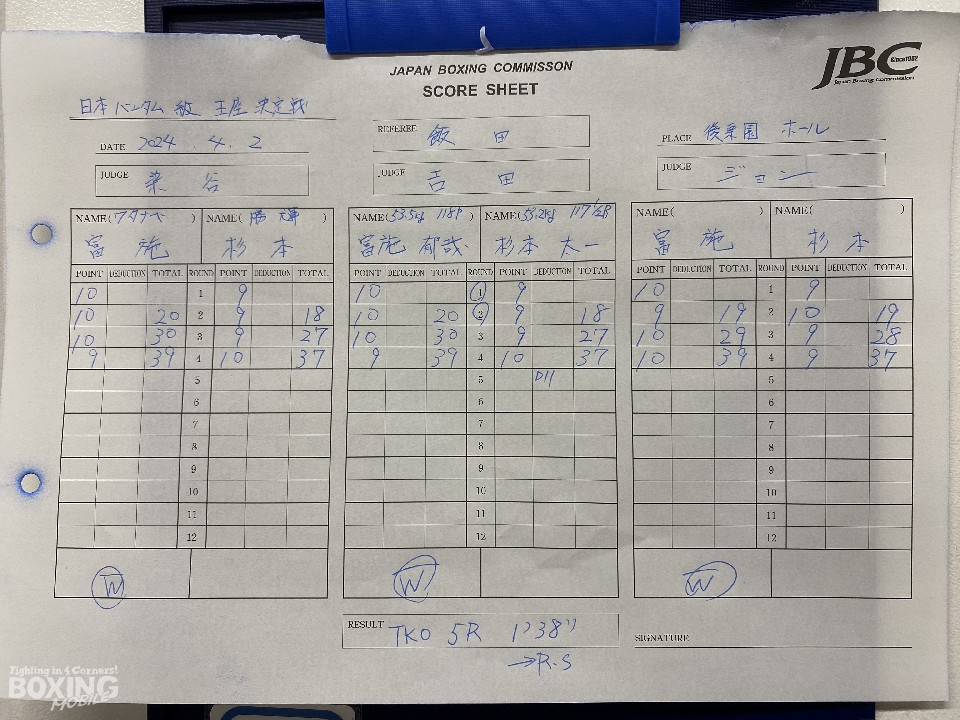 JAPAN BOXING COMMISSON
SCORE SHEET
JBC
Since1952
Japan Boxing Commission
日本バンタム級 王座決定戦
DATE 2024.4.2
REFEREE 飯田
PLACE 後楽園ホール
JUDGE 染谷
JUDGE 吉田
JUDGE ジョン
NAME(ワタナベ) NAME(勝輝) NAME(53.5kg 118P) NAME(53.2kg 117 1/2P) NAME( ) NAME( )
富施 杉本 富施 郁哉 杉本 太一 富施 杉本
POINT DEDUCTION TOTAL ROUND POINT DEDUCTION TOTAL POINT DEDUCTION TOTAL ROUND POINT DEDUCTION TOTAL POINT DEDUCTION TOTAL ROUND POINT DEDUCTION TOTAL
10 1 9 10 1 9 10 1 9
10 20 2 9 18 10 20 2 9 18 9 19 2 10 19
10 30 3 9 27 10 30 3 9 27 10 29 3 9 28
9 39 4 10 37 9 39 4 10 37 10 39 4 9 37
5 5 5
6 6 6
7 7 7
8 8 8
9 9 9
10 10 10
11 11 11
12 12 12
W W W
RESULT TKO 5R 1'38"
→R.S
SIGNATURE
Fighting in 4 Corners!
BOXING
MOBILE